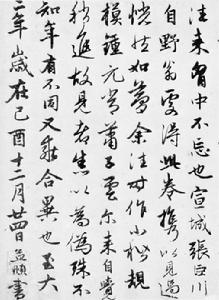 往來胷中不忘也宣城張巨川
自野翁處得此卷攜以見過
恍然如夢余往時作小楷規
模鍾元常蕭子雲爾來自覺
稍進故見者悉以為偽殊不
知年有不同又乖合異也至大
二年歲在己酉十二月廿四日孟頫書